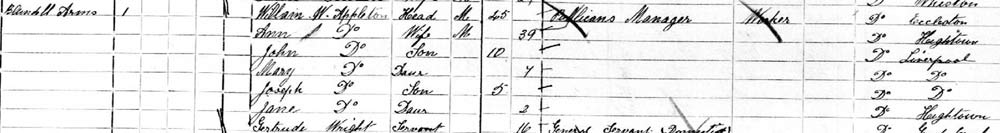 Blundell Arms 1 William W. Appleton Head M 45 Publicans Manager Worker Do Eccleston
Ann J Do Wife M 39 Do Hightown
John Do Son 10 Do Liverpool
Mary Do Daur 7 Do Do
Joseph Do Son 5 Do Do
Jane Do Daur 2 Do Hightown
Gertrude Wright Servant 16 General Servant (Domestic)